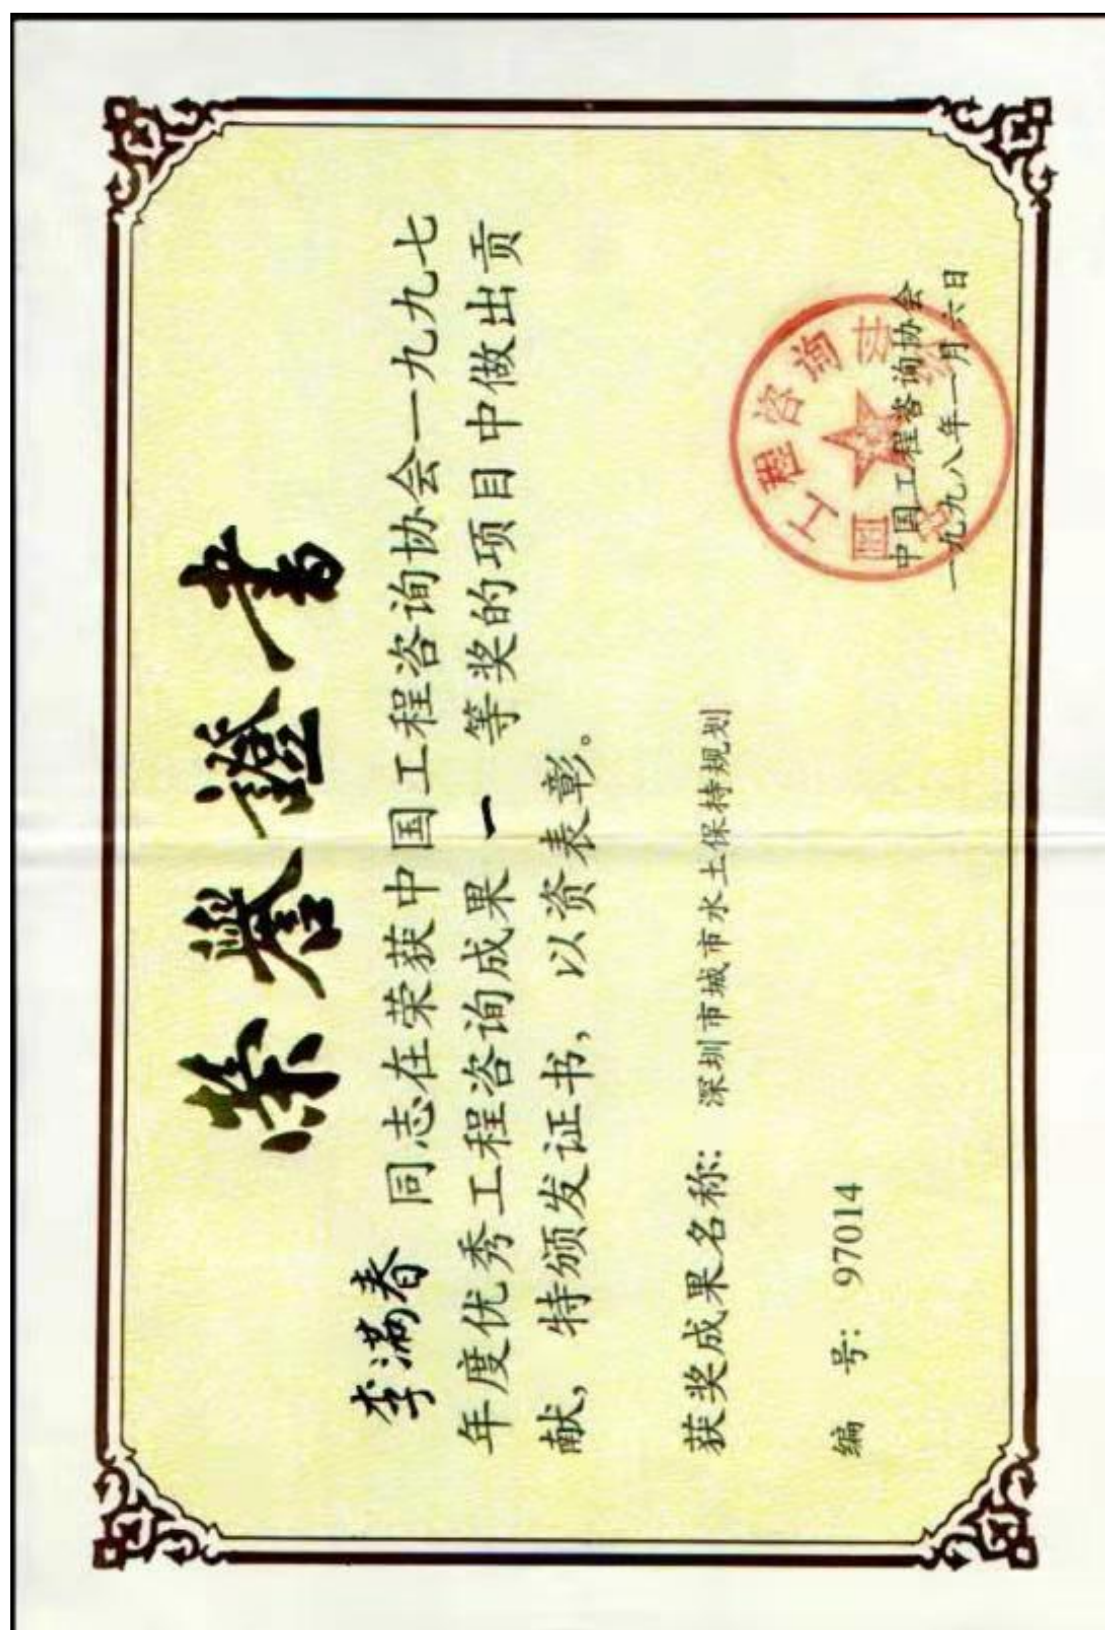 荣誉證书
李满春 同志在荣获中国工程咨询协会一九九七
年度优秀工程咨询成果 一 等奖的项目中做出贡
献，特颁发证书，以资表彰。
获奖成果名称: 深圳市城市水土保持规划
编 号: 97014
中国工程咨询协会
一九九八年一月六日
中国工程咨询协会